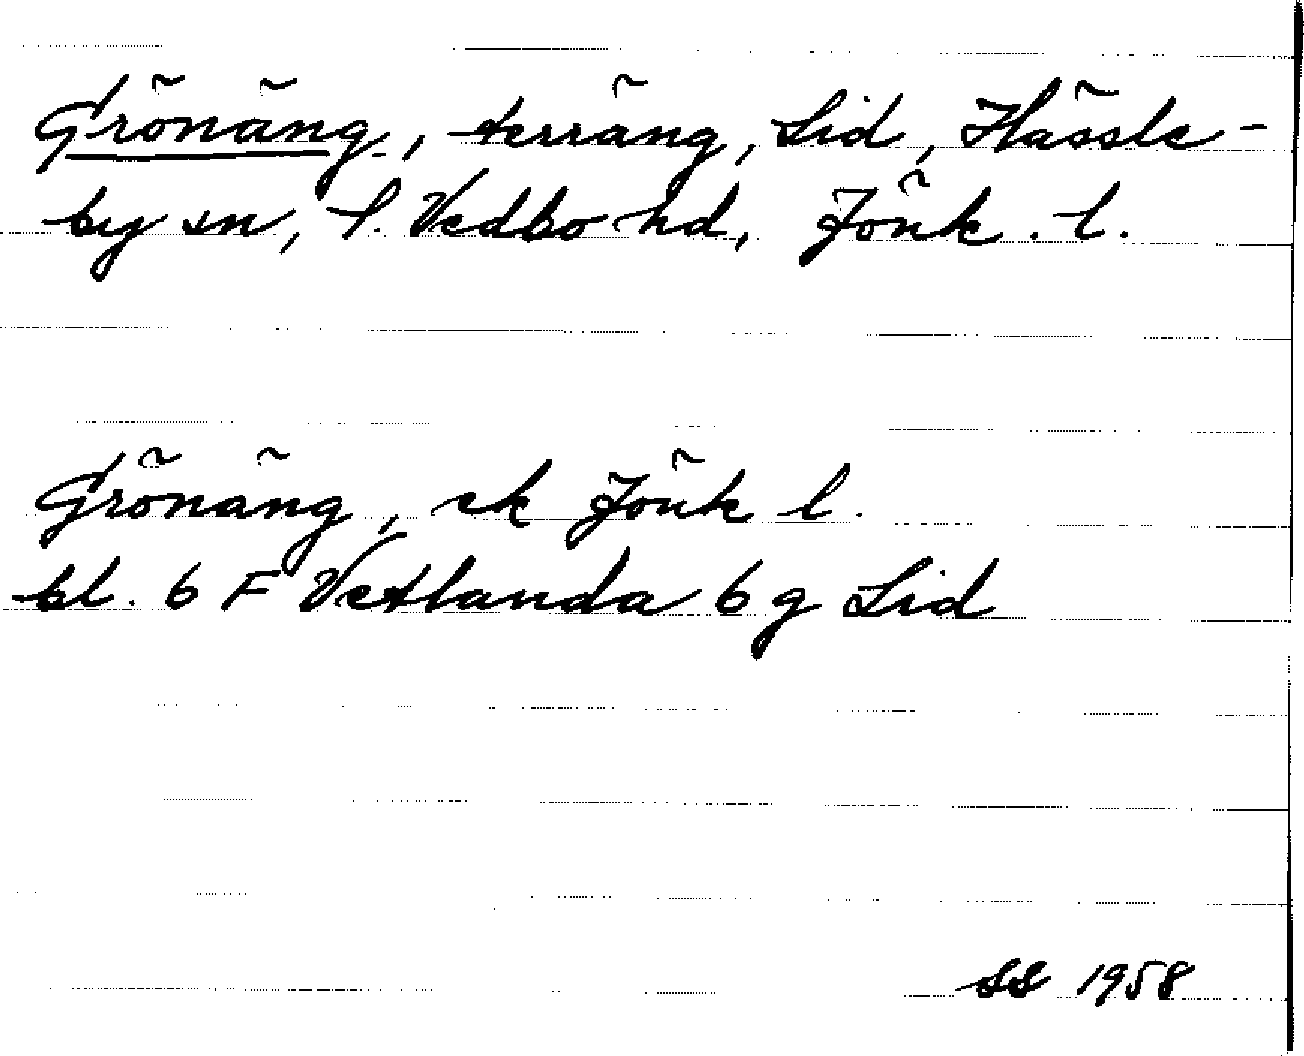 Grönäng, terräng, Lid, Hässle-
by sn, S. Vedbo hd, Jönk. l.
Grönäng, ek Jönk l.
bl. 6 F Vetlanda 6 g Lid
SS 1958